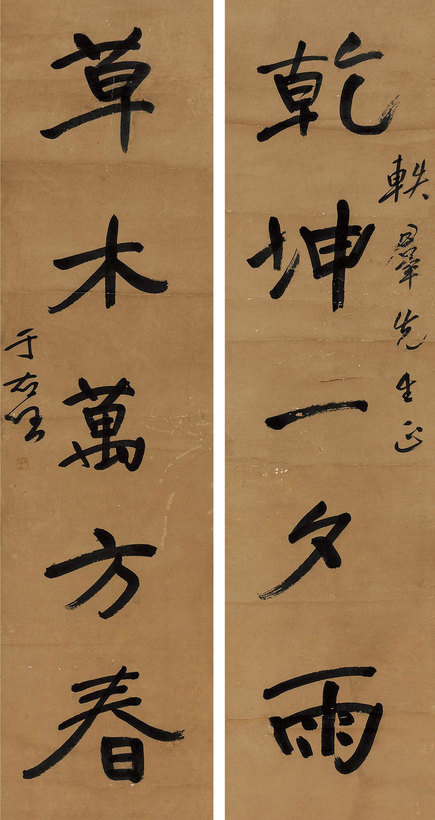 乾坤一夕雨
軼羣先生正
草木萬方春
于右任